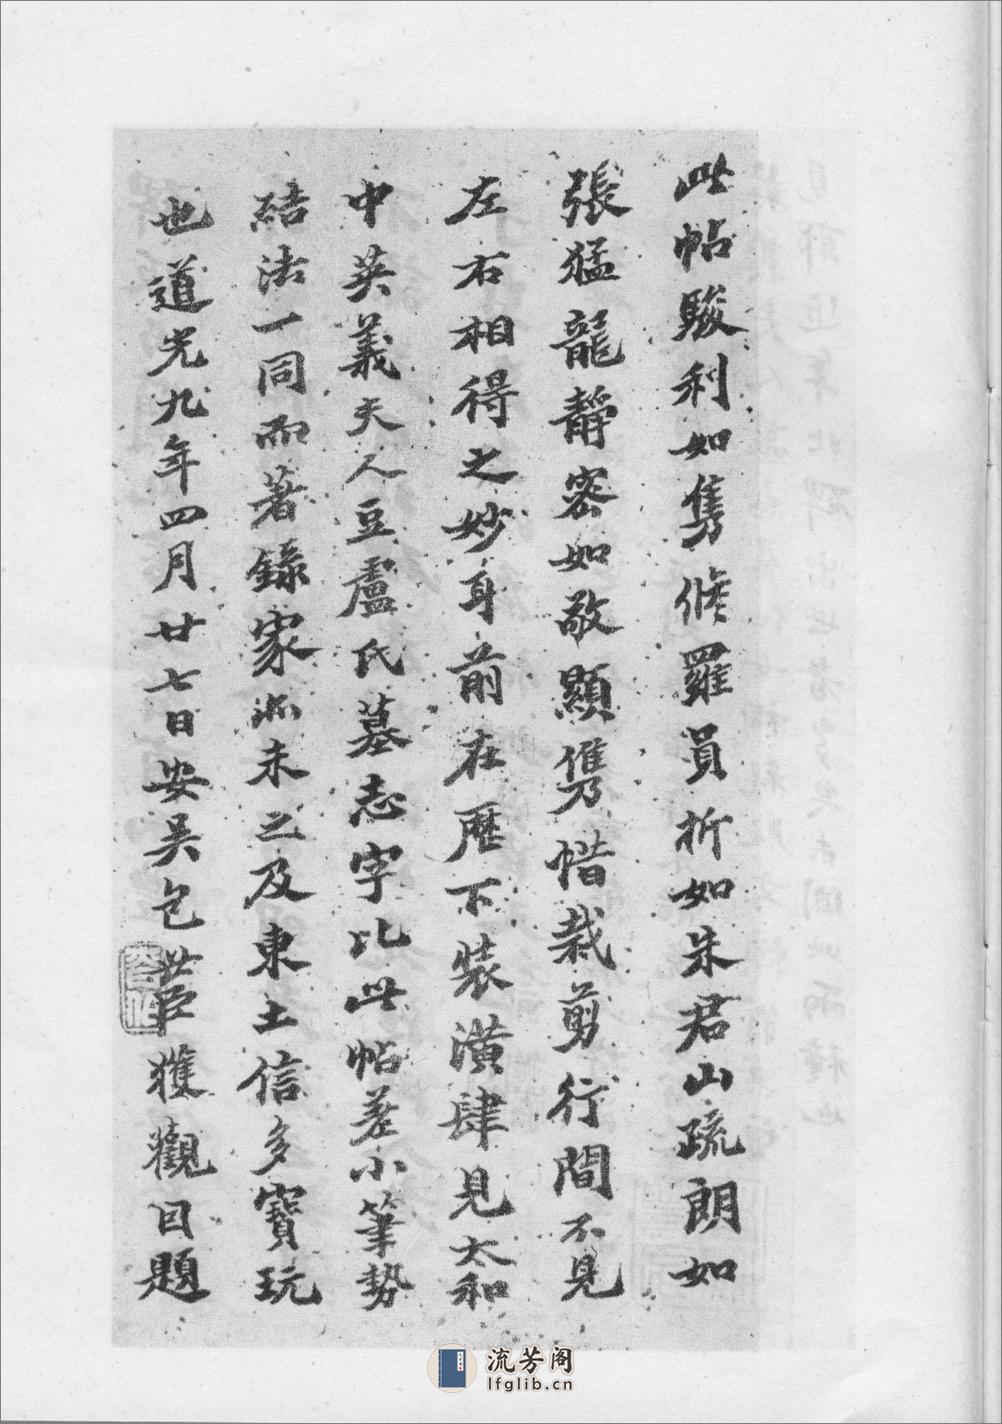 此帖駿利如雋脩羅員折如朱君山疏朗如
張猛龍靜密如敬顯儁惜栽剪行間不見
左右相得之妙耳前在歷下裝潢肆見太和
中英義夫人豆盧氏墓志字比此帖差小筆勢
結法一同而著錄家亦未之及東土信多寶玩
也道光九年四月廿七日安吳包世臣獲觀因題
流芳阁
lfglib.cn